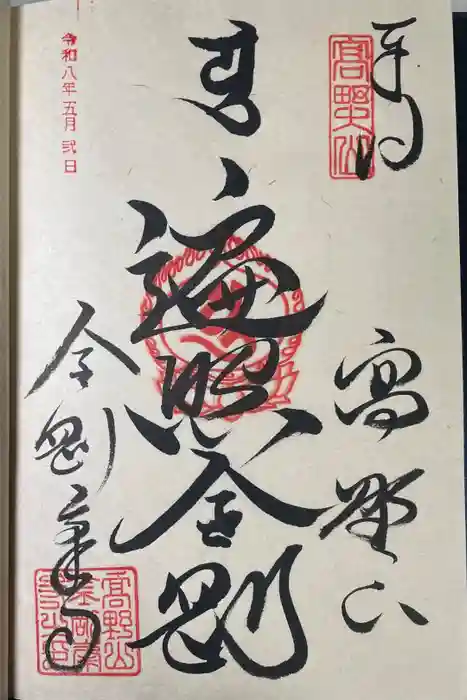 奉拝
高野山
高野山
遍照金剛
金剛峯寺
高野山
令和八年五月弐日